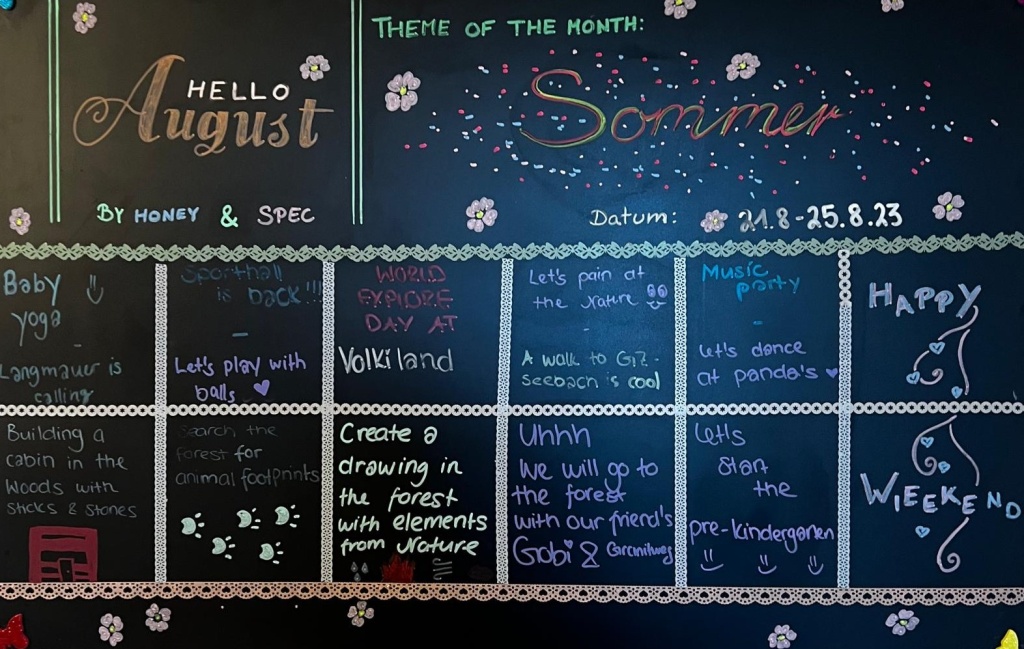 THEME OF THE MONTH:
HELLO
August
Sommer
BY HONEY & SPEC
Datum: 21.8-25.8.23
Baby
yoga
Langmauer is
calling
Sporthall
is back!!!
-
Let's play with
balls
WORLD
EXPLORE
DAY AT
Volkiland
Let's pain at
the Nature
-
A walk to GIZ-
seebach is cool
Music
party
-
Let's dance
at panda's
HAPPY
Building a
cabin in the
Woods with
Sticks & Stones
Search the
forest for
animal footprints
Create a
drawing in
the forest
with elements
from Nature
Uhhh
We will go to
the forest
with our friend's
Gobi &
Let's
Start
the
pre-kindergarten
WEEKEND